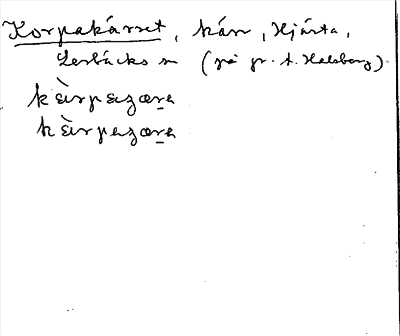 Korpakärret, kärr, Hjärta,
Lerbäcks sn (på gr. t. Halsberg).
kὲrpaȥæra
kὲrpaȥæra